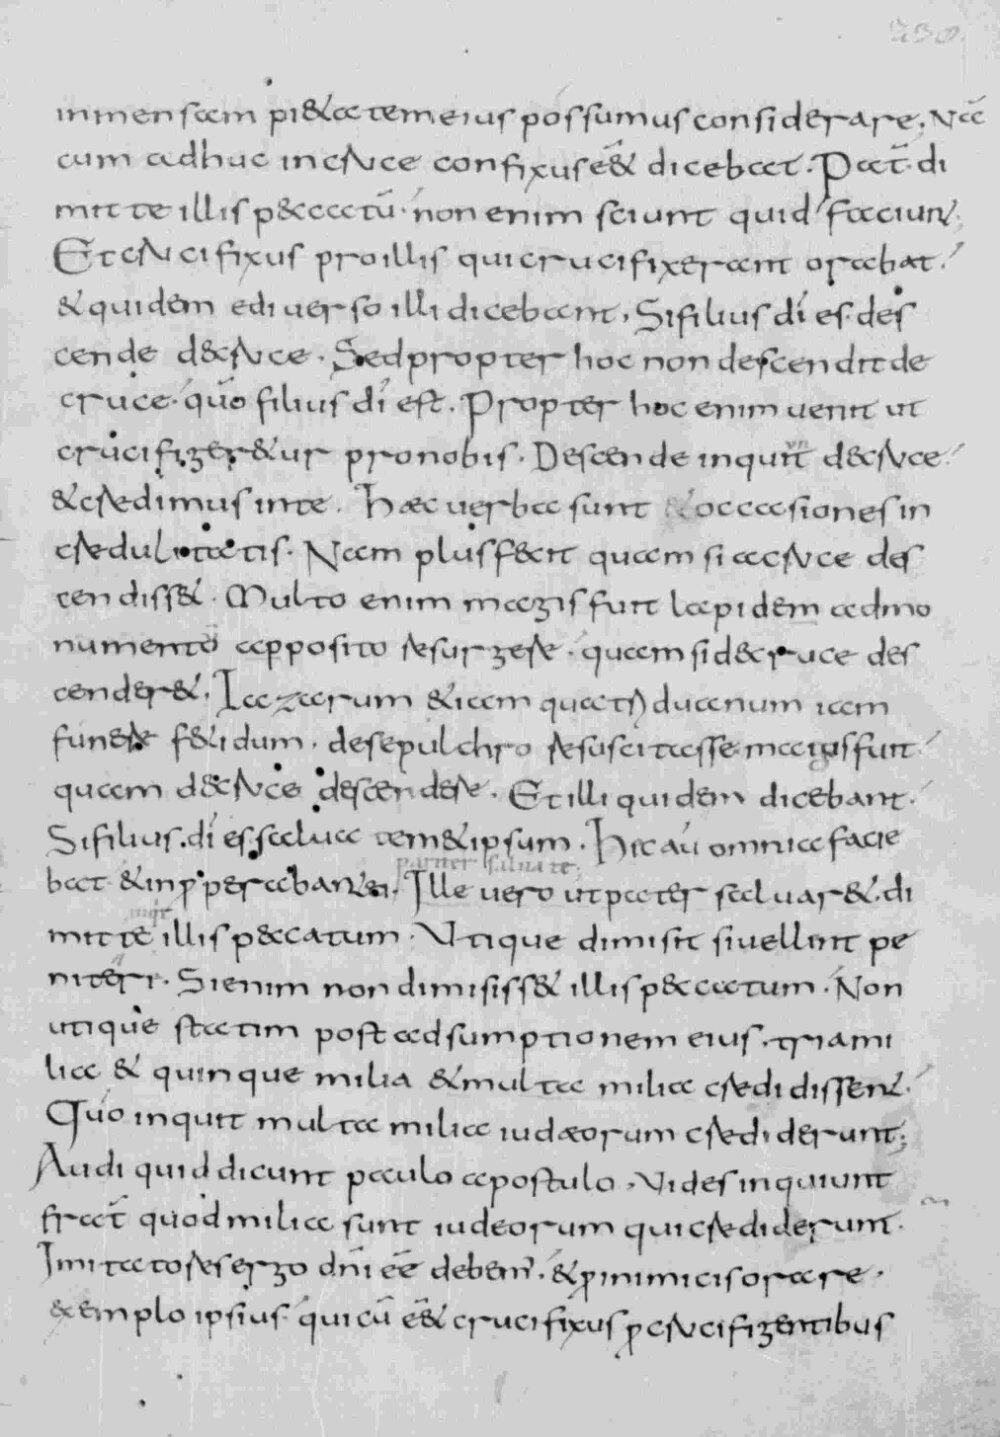 230.
inmensam pi&atemeius possumus considerare. Nā
cum adhuc incruce confixus eē& dicebat. Pat̄ di
mitte illis p&ccatū. non enim sciunt quid faciunt;
Et crucifixus proillis quicrucifixerant orabat.
& quidem ediverso illi dicebant, Sifilius dī es des
cende d&cruce. Sedpropter hoc non descendit de
cruce. quō filius dī est. Propter hoc enim uenit ut
crucifiger&ur pronobis. Descende inquit d&cruce.
&credimus inte. Haec uerba sunt & occasiones in
credulitatis. Nam plus fecit quam si acruce des
cendiss&. Multo enim magis fuit lapidem admo
numento apposito resurgere. quam side cruce des
cender&. Lazarum &iam quatriduanum iam
funere f&idum. desepulchro resuscitasse magis fuit.
quam decruce descendere. Et illi quidem dicebant.
Sifilius dī es salua tem&ipsum. Hic aū omnia facie
pariter saluate
bat. &inpperabant. Ille uero ut pater saluar&. di
mitte illis peccatum. Vtique dimisit siuellint pe
niteri. Sienim non dimisiss& illis peccatum. Non
utique statim post adsumptionem eius. triami
lia & quinque milia &multa milia credidissent.
Quō inquit multa milia iudaeorum crediderunt;
Audi quid dicunt paulo apostulo. Vides inquiunt
frat̄ quod milia sunt iudeorum qui crediderunt.
Imitatores ergo dn̄i eē debem'. &p inimicis orare.
exemplo ipsius. qui cū eē& crucifixus p crucifigentibus